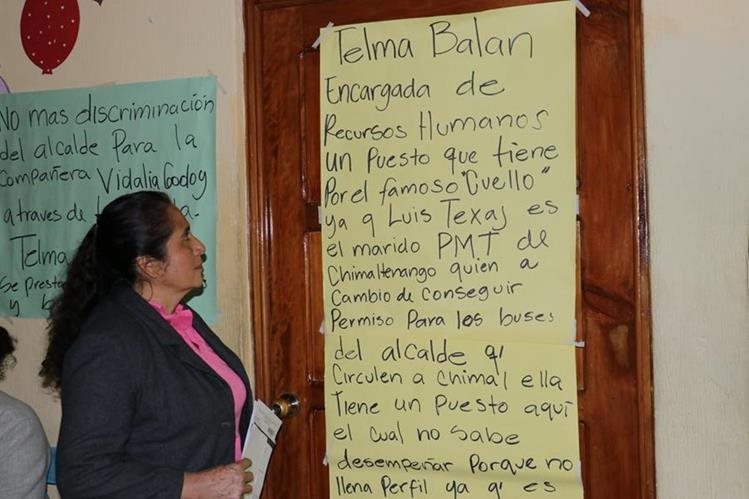 No mas discriminación
del alcalde Para la
compañera Vidalia Godoy
a traves de
Telma
se presta
y
Telma Balan
Encargada de
Recursos Humanos
un Puesto que tiene
Por el famoso "Cuello"
ya q Luis Texaj es
el marido PMT de
Chimaltenango quien a
Cambio de conseguir
Permiso Para los buses
del alcalde q'
Circulen a Chimal ella
Tiene un Puesto aquí
el cual no sabe
desempeñar Porque no
llena Perfil ya q' es